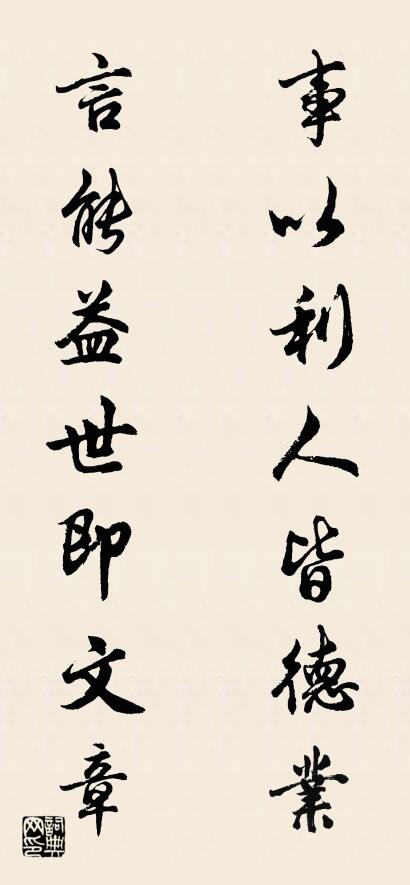 事以利人皆德業
言能益世即文章
詞典網印